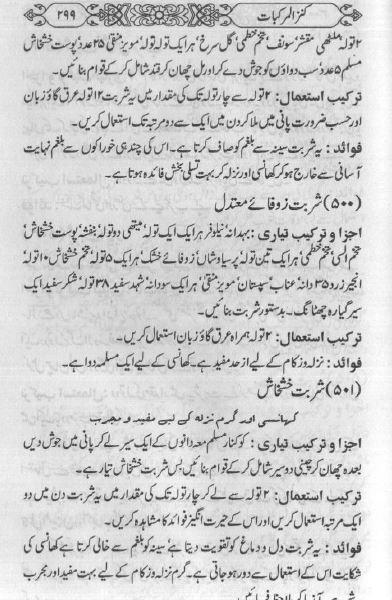 کنز المرکبات ۲۹۹
۲ تولہ ملٹھی مقشر سونف تخم خطمی گل سرخ ہر ایک تولہ تولہ مویز منقیٰ ۲۵ عدد پوست خشخاش
مسلم ۵ عدد سب دواؤں کو جوش دے کر اور مل چھان کر قند شامل کر کے قوام بنائیں۔
ترکیب استعمال: ۲ تولہ سے چار تولہ تک کی مقدار میں یہ شربت ۱۲ تولہ عرق گاؤزبان
اور حسب ضرورت پانی میں ملا کر دن میں ایک سے دو مرتبہ تک استعمال کریں۔
فوائد: یہ شربت سینہ سے بلغم کو صاف کرتا ہے۔ اس کی چند ہی خوراکوں سے بلغم نہایت
آسانی سے خارج ہو کر کھانسی اور نزلہ کر بہت تسلی بخش فائدہ ہوتا ہے۔
(۵۰۰) شربت زوفائے معتدل
اجزا و ترکیب تیاری: بہدانہ نیلوفر ہر ایک ایک تولہ میتھی دو تولہ بنفشہ پوست خشخاش
تخم السی تخم خطمی ہر ایک تین تولہ پرسیاوشاں زوفائے خشک ہر ایک ۵ تولہ تخم خشخاش ۱۰ تولہ
انجیر زرد ۳۵ دانہ عناب سپستان مویز منقیٰ ہر ایک سو دانہ شہد سفید ۳۸ تولہ شکر سفید ایک
سیر گیارہ چھٹانک۔ بدستور شربت بنائیں۔
ترکیب استعمال: ۲ تولہ ہمراہ عرق گاؤزبان استعمال کریں۔
فوائد: نزلہ و زکام کے لیے از حد مفید ہے۔ کھانسی کے لیے ایک مسلمہ دوا ہے۔
(۵۰۱) شربت خشخاش
کھانسی اور گرم نزلہ کے لیے مفید و مجرب
اجزا و ترکیب تیاری: کوکنار مسلم معہ دانوں کے ایک سیر لے کر پانی میں جوش دیں
بعدہ چھان کر چینی دو سیر شامل کر کے قوام بنائیں بس شربت خشخاش تیار ہے۔
ترکیب استعمال: ۲ تولہ سے لے کر چار تولہ تک کی مقدار میں یہ شربت دن میں دو
ایک مرتبہ استعمال کریں اور اس کے حیرت انگیز فوائد کا مشاہدہ کریں۔
فوائد: یہ شربت دل و دماغ کو تقویت دیتا ہے سینہ کو بلغم سے خالی کرتا ہے کھانسی کی
شکایت اس کے استعمال سے دور ہو جاتی ہے۔ گرم نزلہ و زکام کے لیے بہت مفید اور مجرب